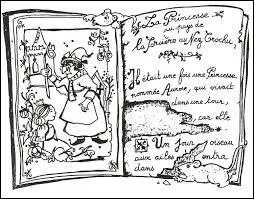 La Princesse
au pays de
la Sorcière au Nez Crochu
Il était une fois une Princesse
nommée Aurore, qui vivait
dans une tour,
car elle
Un jour
oiseau
aux ailes
entra
dans